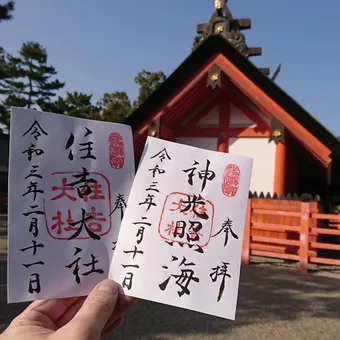 奉拝
住吉大社
令和三年二月十一日
住吉大社
奉拝
神光照海
令和三年二月十一日